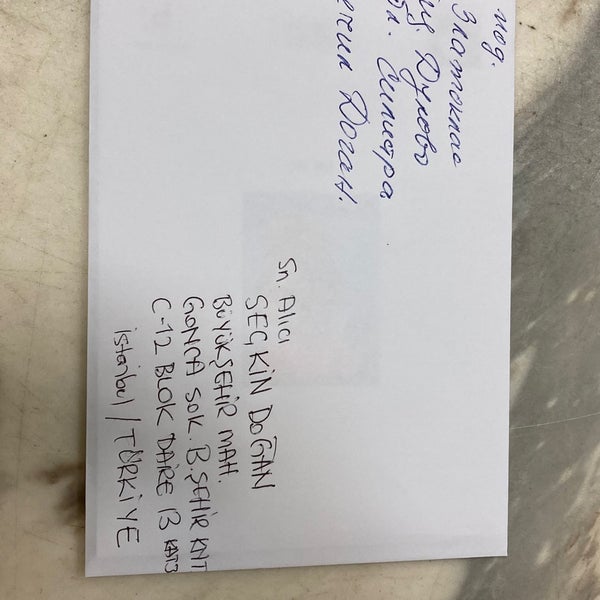 под.
Златоклас
Дулово
Силистра
Доган.
Sn. Alıcı
SEÇKİN DOĞAN
BÜYÜKŞEHİR MAH.
GONCA SOK. B.ŞEHİR KNT
C-12 BLOK DAİRE 13 KAT3
İstanbul / TÜRKİYE